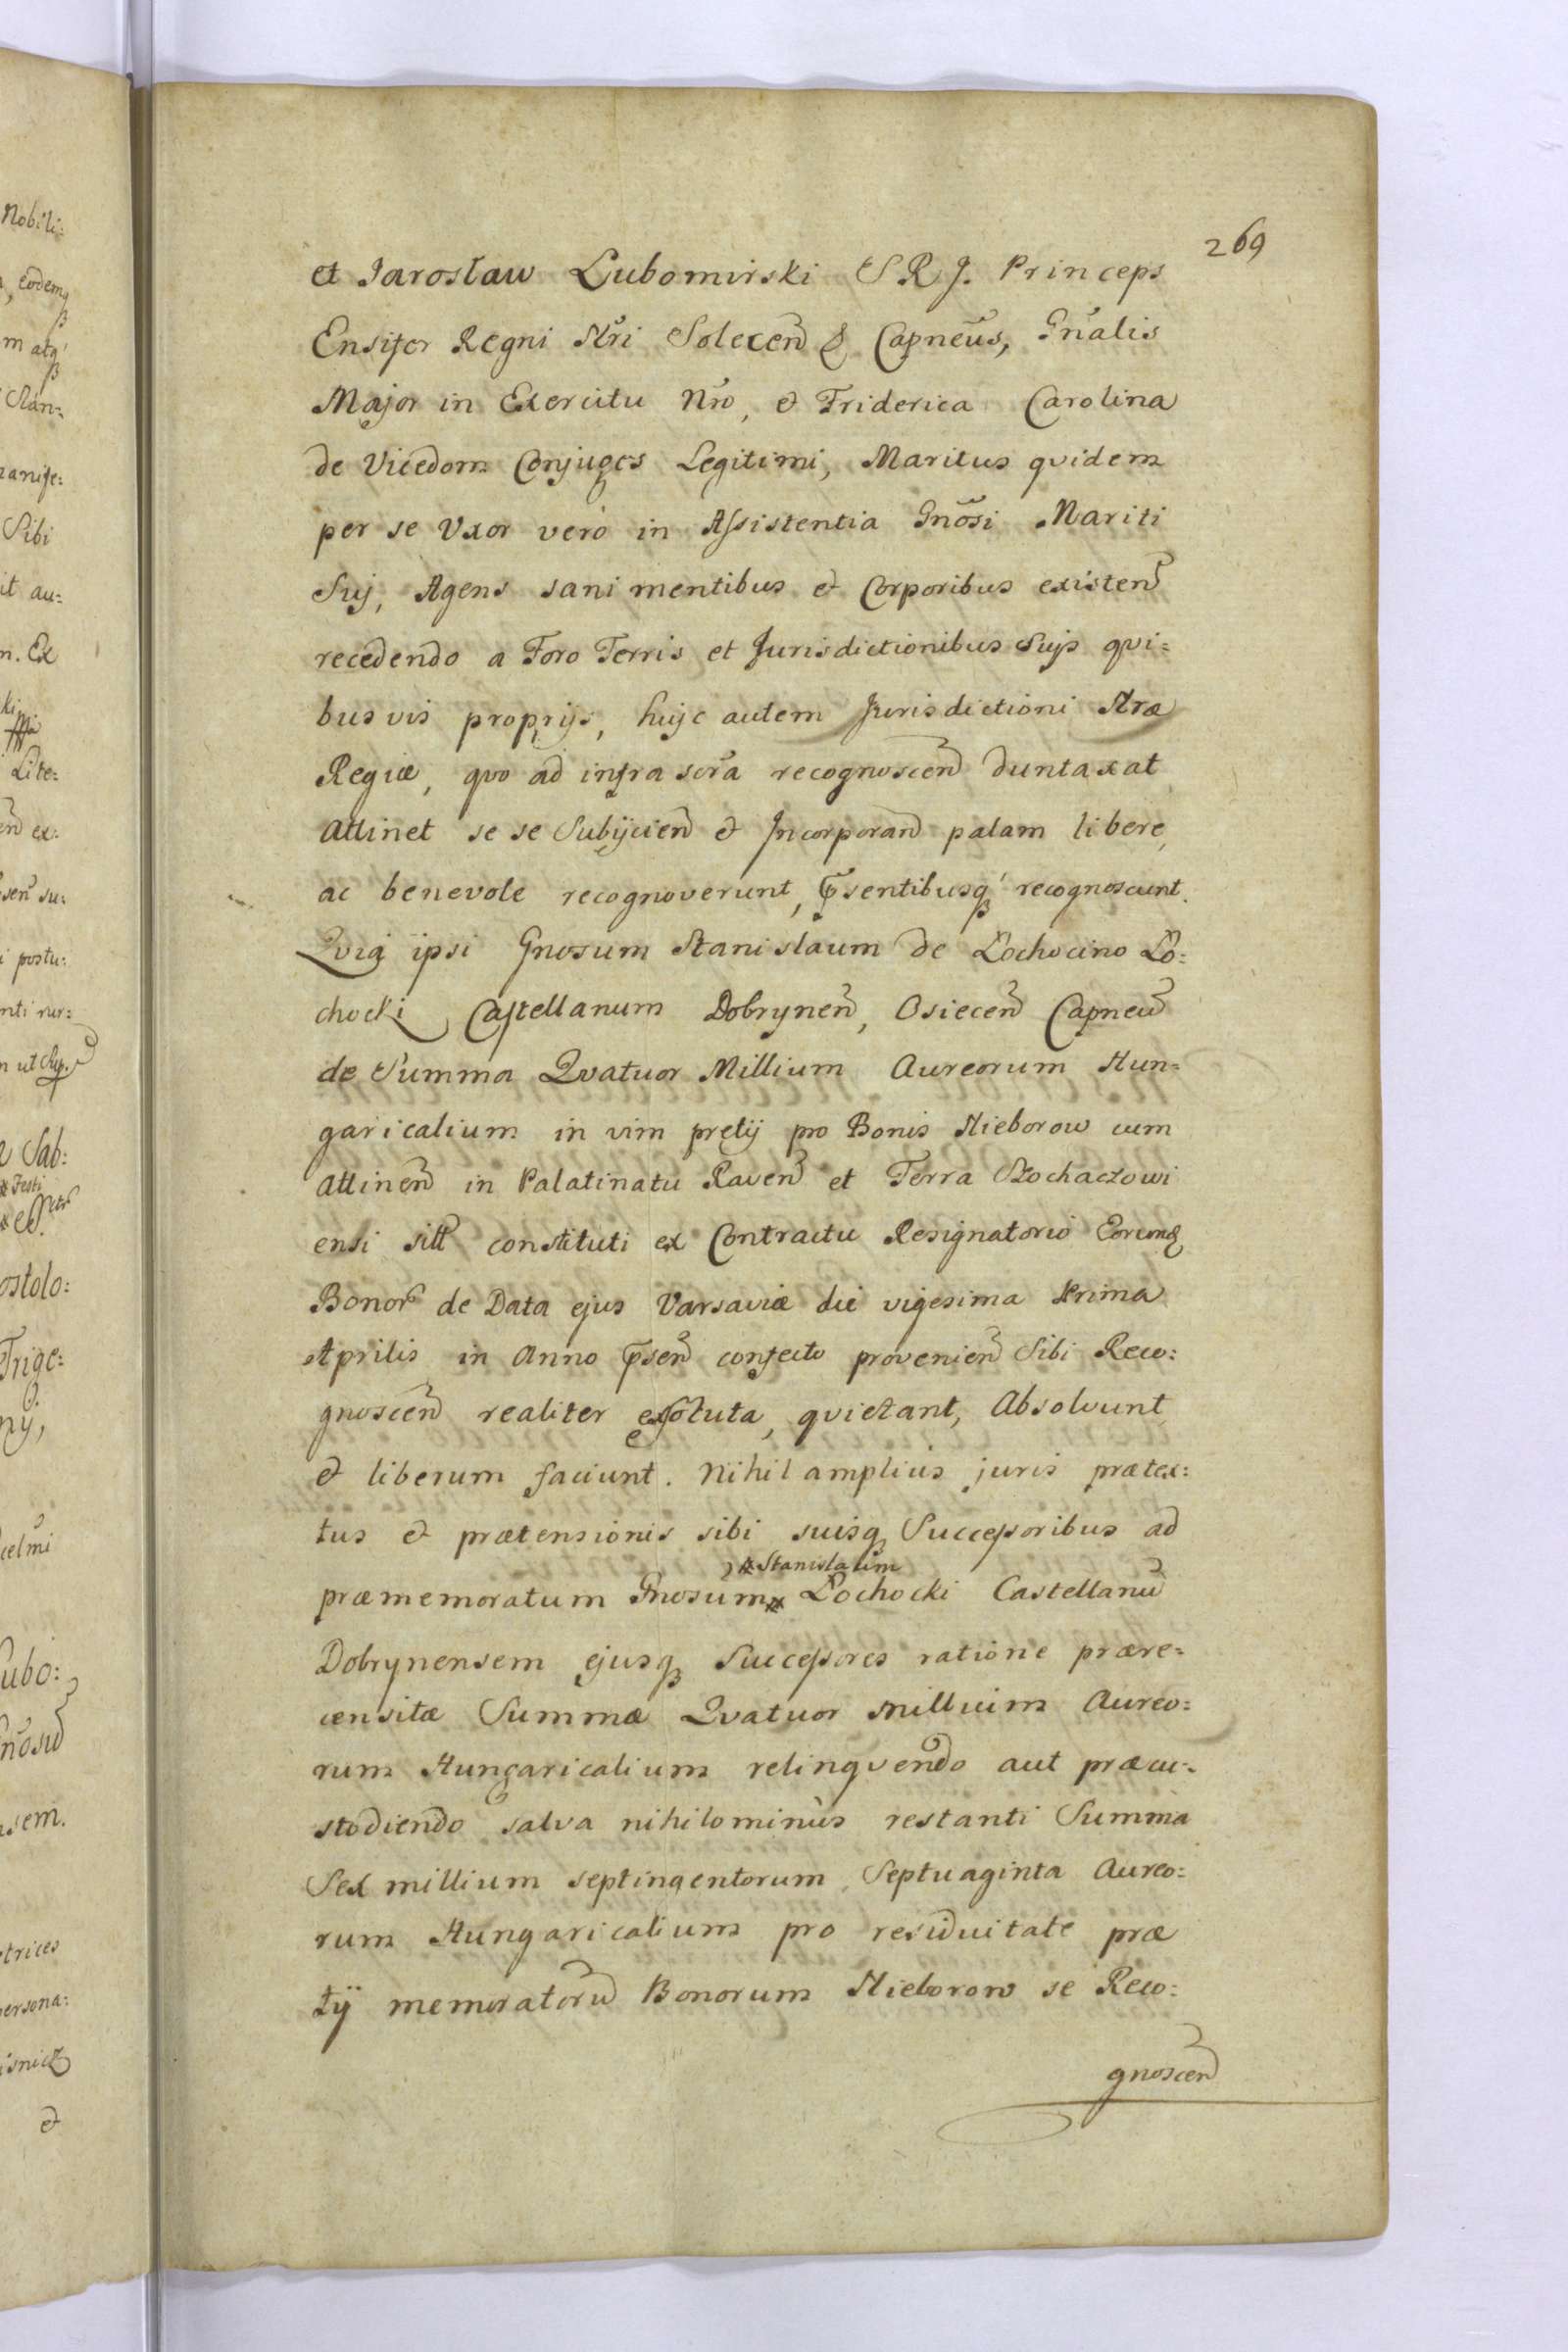 269
et Jarosław Lubomirski S R J. Princeps
Ensifer Regni Nri Solecen & Capneus, Gnalis
Major in Exercitu Nro, et Friderica Carolina
de Vicedom Conjuges Legitimi, Maritus qvidem
per se Uxor verò in Assistentia Gnosi Mariti
Suj, Agens sani mentibus et Corporibus existen
recedendo a Foro Terris et Jurisdictionibus Sujs qvi=
busvis proprijs, hujc autem Jurisdictioni Nræ
Regiæ, qvo ad infra scra recognoscen duntaxat
Attinet se se Subijcien et Incorporan palam libere,
ac benevole recognoverunt, psentibusq recognoscunt.
Qvia ipsi Gnosum Stanislaum de Łochocino Ło=
chocki Castellanum Dobrynen, Osiecen Capneu
de Summa Qvatuor Millium Aureorum Hun=
garicalium in vim pretij pro Bonis Nieborow cum
Attinen in Palatinatu Raven et Terra Sochaczowi
ensi sitt constituti ex Contractu Resignatorio Eorumq
Bonor de Data ejus Varsaviæ die vigesima Prima
Aprilis in Anno psen confecto provenien Sibi Reco=
gnoscen realiter exsoluta, qvietant, Absolvunt
et liberum faciunt. Nihil amplius juris prætex=
tus et prætensionis sibi suisq Successoribus ad
Stanislaum
præmemoratum Gnosum Łochocki Castellanu
Dobrynensem ejusq Successores ratione prære=
censitæ Summæ Qvatuor millium Aureo=
rum Hungaricalium relinqvendo aut præcu=
stodiendo salva nihilominùs restanti Summa
Sex millium septingentorum Septuaginta Aureo=
rum Hungaricalium pro residuitate præ
tij memoratoru Bonorum Nieborow se Reco=
gnoscen